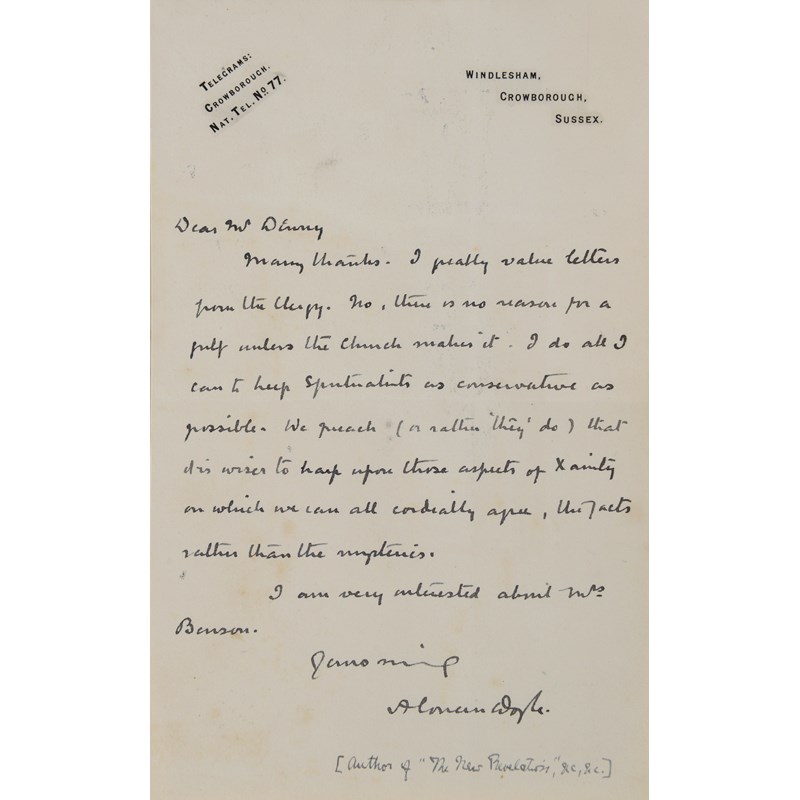 TELEGRAMS:
CROWBOROUGH.
NAT. TEL. No 77.
WINDLESHAM,
CROWBOROUGH,
SUSSEX.
Dear Mr Denny
Many thanks. I greatly value letters
from the Clergy. No, there is no reason for a
gulf unless the Church makes it. I do all I
can to keep Spiritualists as conservative as
possible. We preach (or rather 'they' do) that
it is wiser to harp upon those aspects of Xainity
on which we can all cordially agree, the facts
rather than the mysteries.
I am very interested about Mrs
Benson.
Yours sincerely
A Conan Doyle.
[Author of "The New Revelation", &c, &c.]